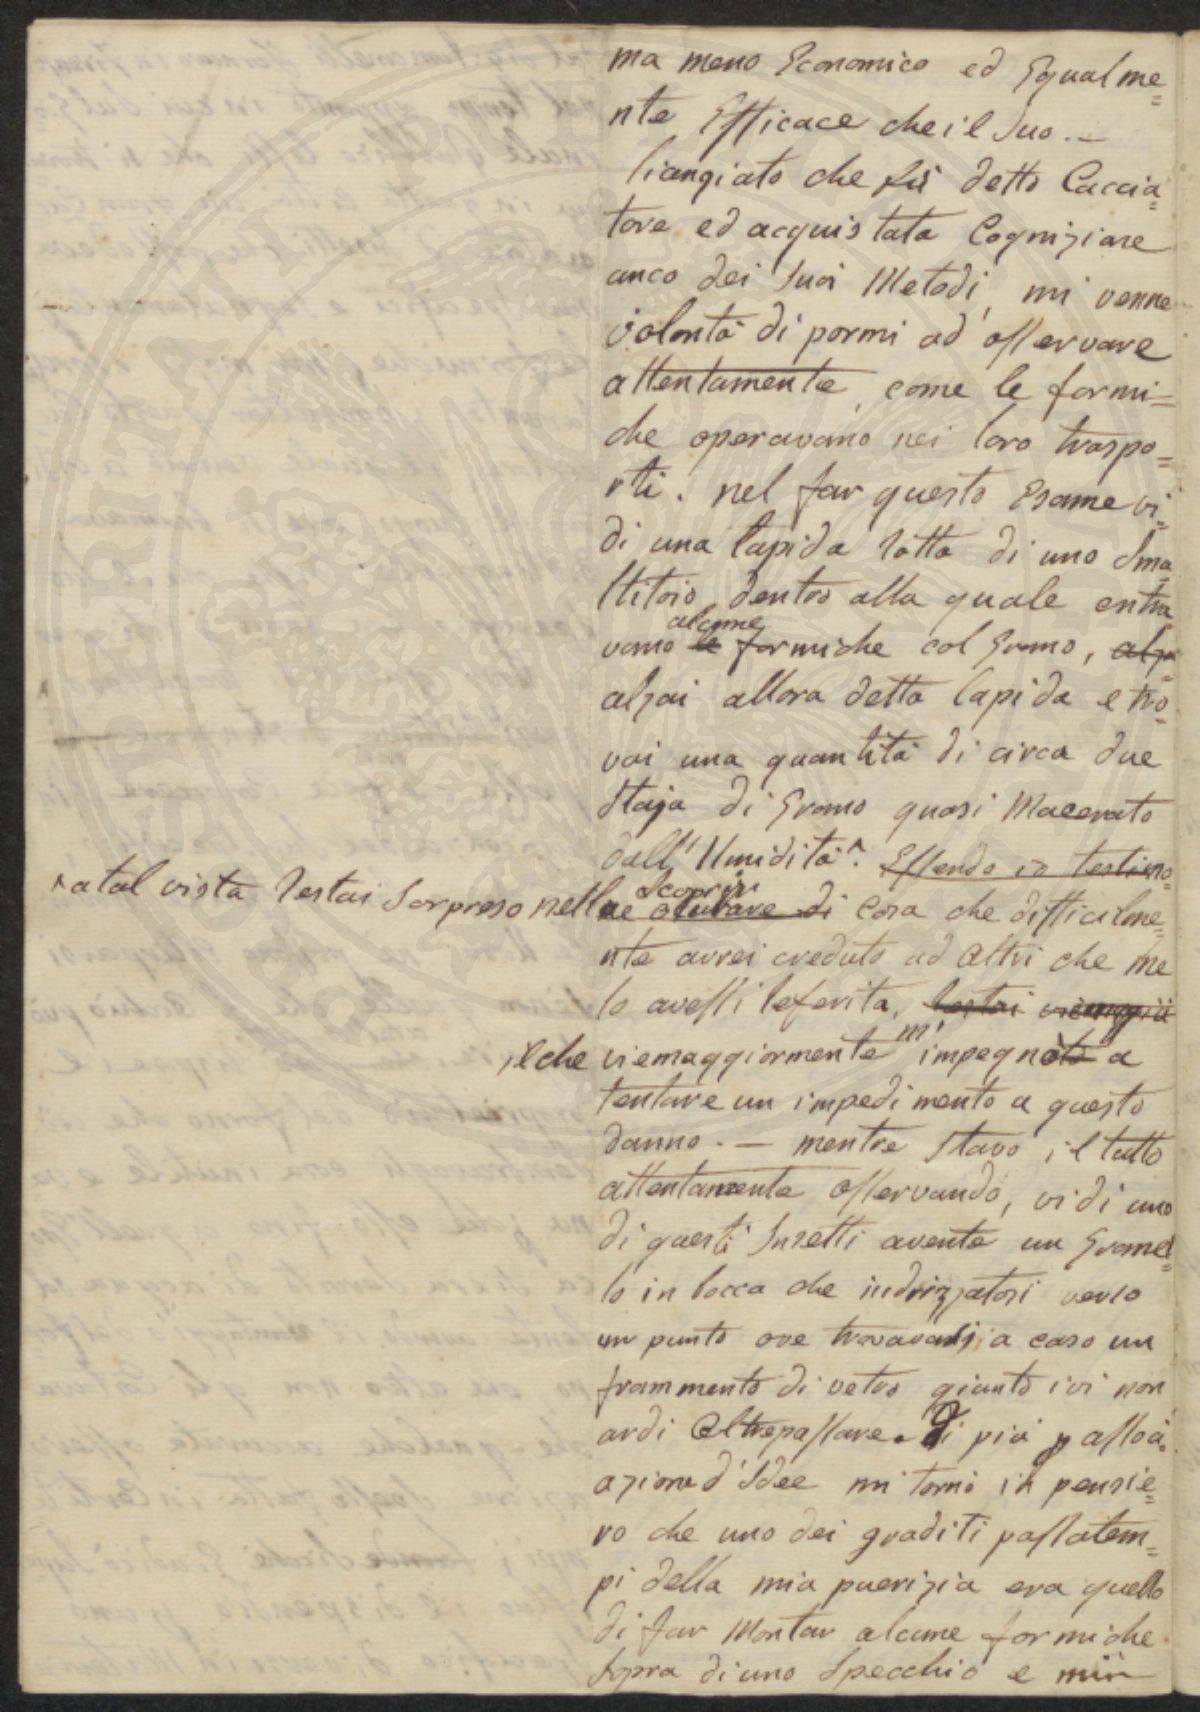 ma meno Economico ed Equalme=
nte Efficace che il Suo. —
liangiato che fù detto Caccia=
tore ed acquistata Cognizione
anco dei Suoi Metodi, mi venne
volontà di pormi ad osservare
attentamente, come le formi=
che operavano nei loro traspo=
rti. nel far questo Esame vi=
di una lapida rotta di uno Sma=
ltitoio dentro alla quale entra
vano le alcune formiche col Grano, alza
alzai allora detta lapida e tro=
vai una quantità di circa due
Staja di Grano quasi Macerato
dall'Umidità ^. Essendo io testimo=
^ a tal vista restai Sorpreso nello Scoprir di cosa che difficilme=
nte avrei creduto ad Altri che me
lo avessi referita, restai viemaggii
il che viemaggiormente m' impegnò a
tentare un impedimento a questo
danno. — mentre Stavo il tutto
attentamente osservando, vidi uno
di questi Insetti avente un Granel=
lo in bocca che indrizzatosi verso
un punto ove trovavasi a caso un
frammento di vetro giunto ivi non
ardì Oltrepassare. Di più p associ=
azione d'Idee mi tornò in pensie=
ro che uno dei graditi passatem=
pi della mia puerizia era quello
di far Montar alcune formiche
Sopra di uno Specchio e